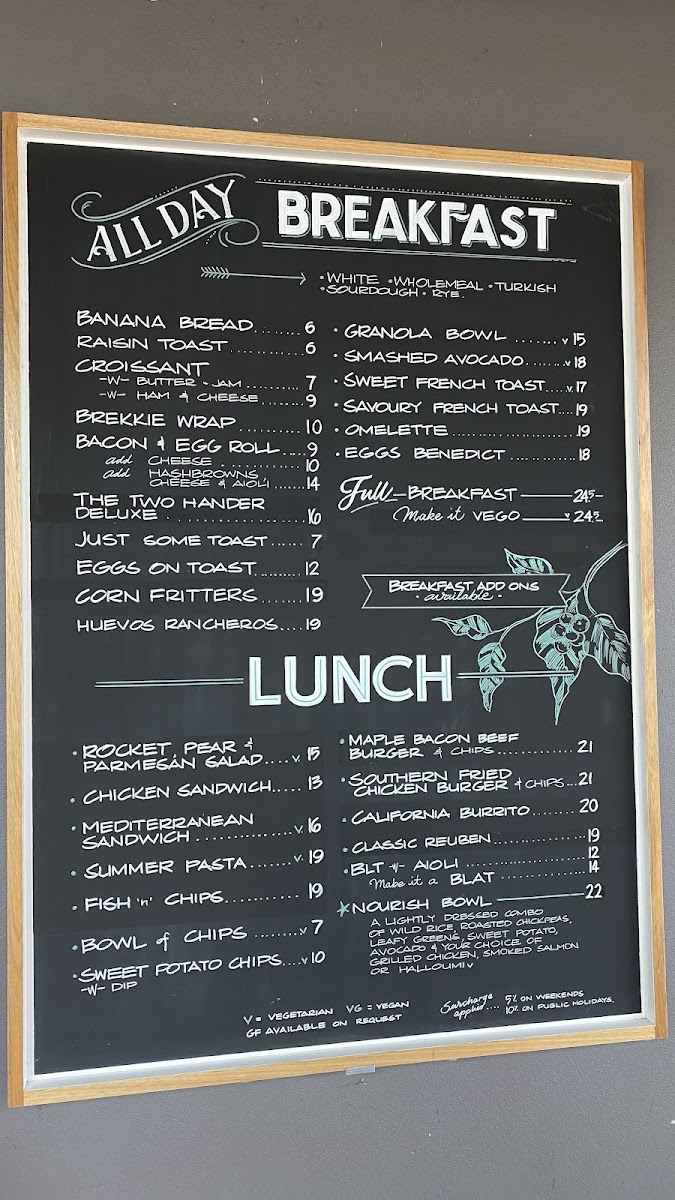 ALL DAY BREAKFAST
•WHITE •WHOLEMEAL •TURKISH
•SOURDOUGH • RYE.
BANANA BREAD....... 6
RAISIN TOAST............ 6
CROISSANT
-W- BUTTER & JAM.......... 7
-W- HAM & CHEESE....... 9
BREKKIE WRAP........... 10
BACON & EGG ROLL.... 9
add CHEESE .............. 10
add HASHBROWNS
CHEESE & AIOLI ...... 14
THE TWO HANDER
DELUXE................. 16
JUST SOME TOAST...... 7
EGGS ON TOAST......... 12
CORN FRITTERS ...... 19
HUEVOS RANCHEROS.... 19
• GRANOLA BOWL ....... V 15
• SMASHED AVOCADO........ V 18
• SWEET FRENCH TOAST.... V. 17
• SAVOURY FRENCH TOAST.... 19
• OMELETTE..................... 19
• EGGS BENEDICT .......... 18
Full BREAKFAST 24.5
Make it VEGO V 24.5
BREAKFAST ADD ONS
• available •
LUNCH
• ROCKET, PEAR &
PARMESAN SALAD.... V. 15
• CHICKEN SANDWICH..... 13
• MEDITERRANEAN
SANDWICH .............. V. 16
• SUMMER PASTA....... V. 19
• FISH 'n' CHIPS.......... 19
• BOWL of CHIPS ....... V 7
• SWEET POTATO CHIPS.... V 10
-W- DIP
• MAPLE BACON BEEF
BURGER & CHIPS............. 21
• SOUTHERN FRIED
CHICKEN BURGER & CHIPS... 21
• CALIFORNIA BURRITO....... 20
• CLASSIC REUBEN............. 19
• BLT -W- AIOLI ................. 12
Make it a BLAT ............. 14
★ NOURISH BOWL 22
A LIGHTLY DRESSED COMBO
OF WILD RICE, ROASTED CHICKPEAS,
LEAFY GREENS, SWEET POTATO,
AVOCADO & YOUR CHOICE OF
GRILLED CHICKEN, SMOKED SALMON
OR HALLOUMI V
V = VEGETARIAN VG = VEGAN
GF AVAILABLE ON REQUEST
Surcharge applies.... 5% ON WEEKENDS
10% ON PUBLIC HOLIDAYS.